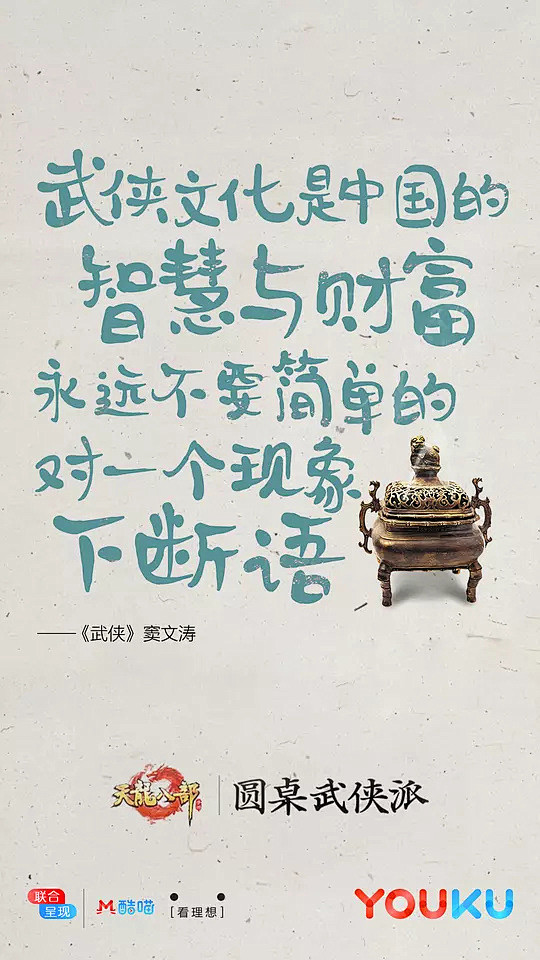 武侠文化是中国的
智慧与财富
永远不要简单的
对一个现象
下断语
——《武侠》窦文涛
天龍八部
圆桌武侠派
联合
呈现
酷喵
[看理想]
YOUKU